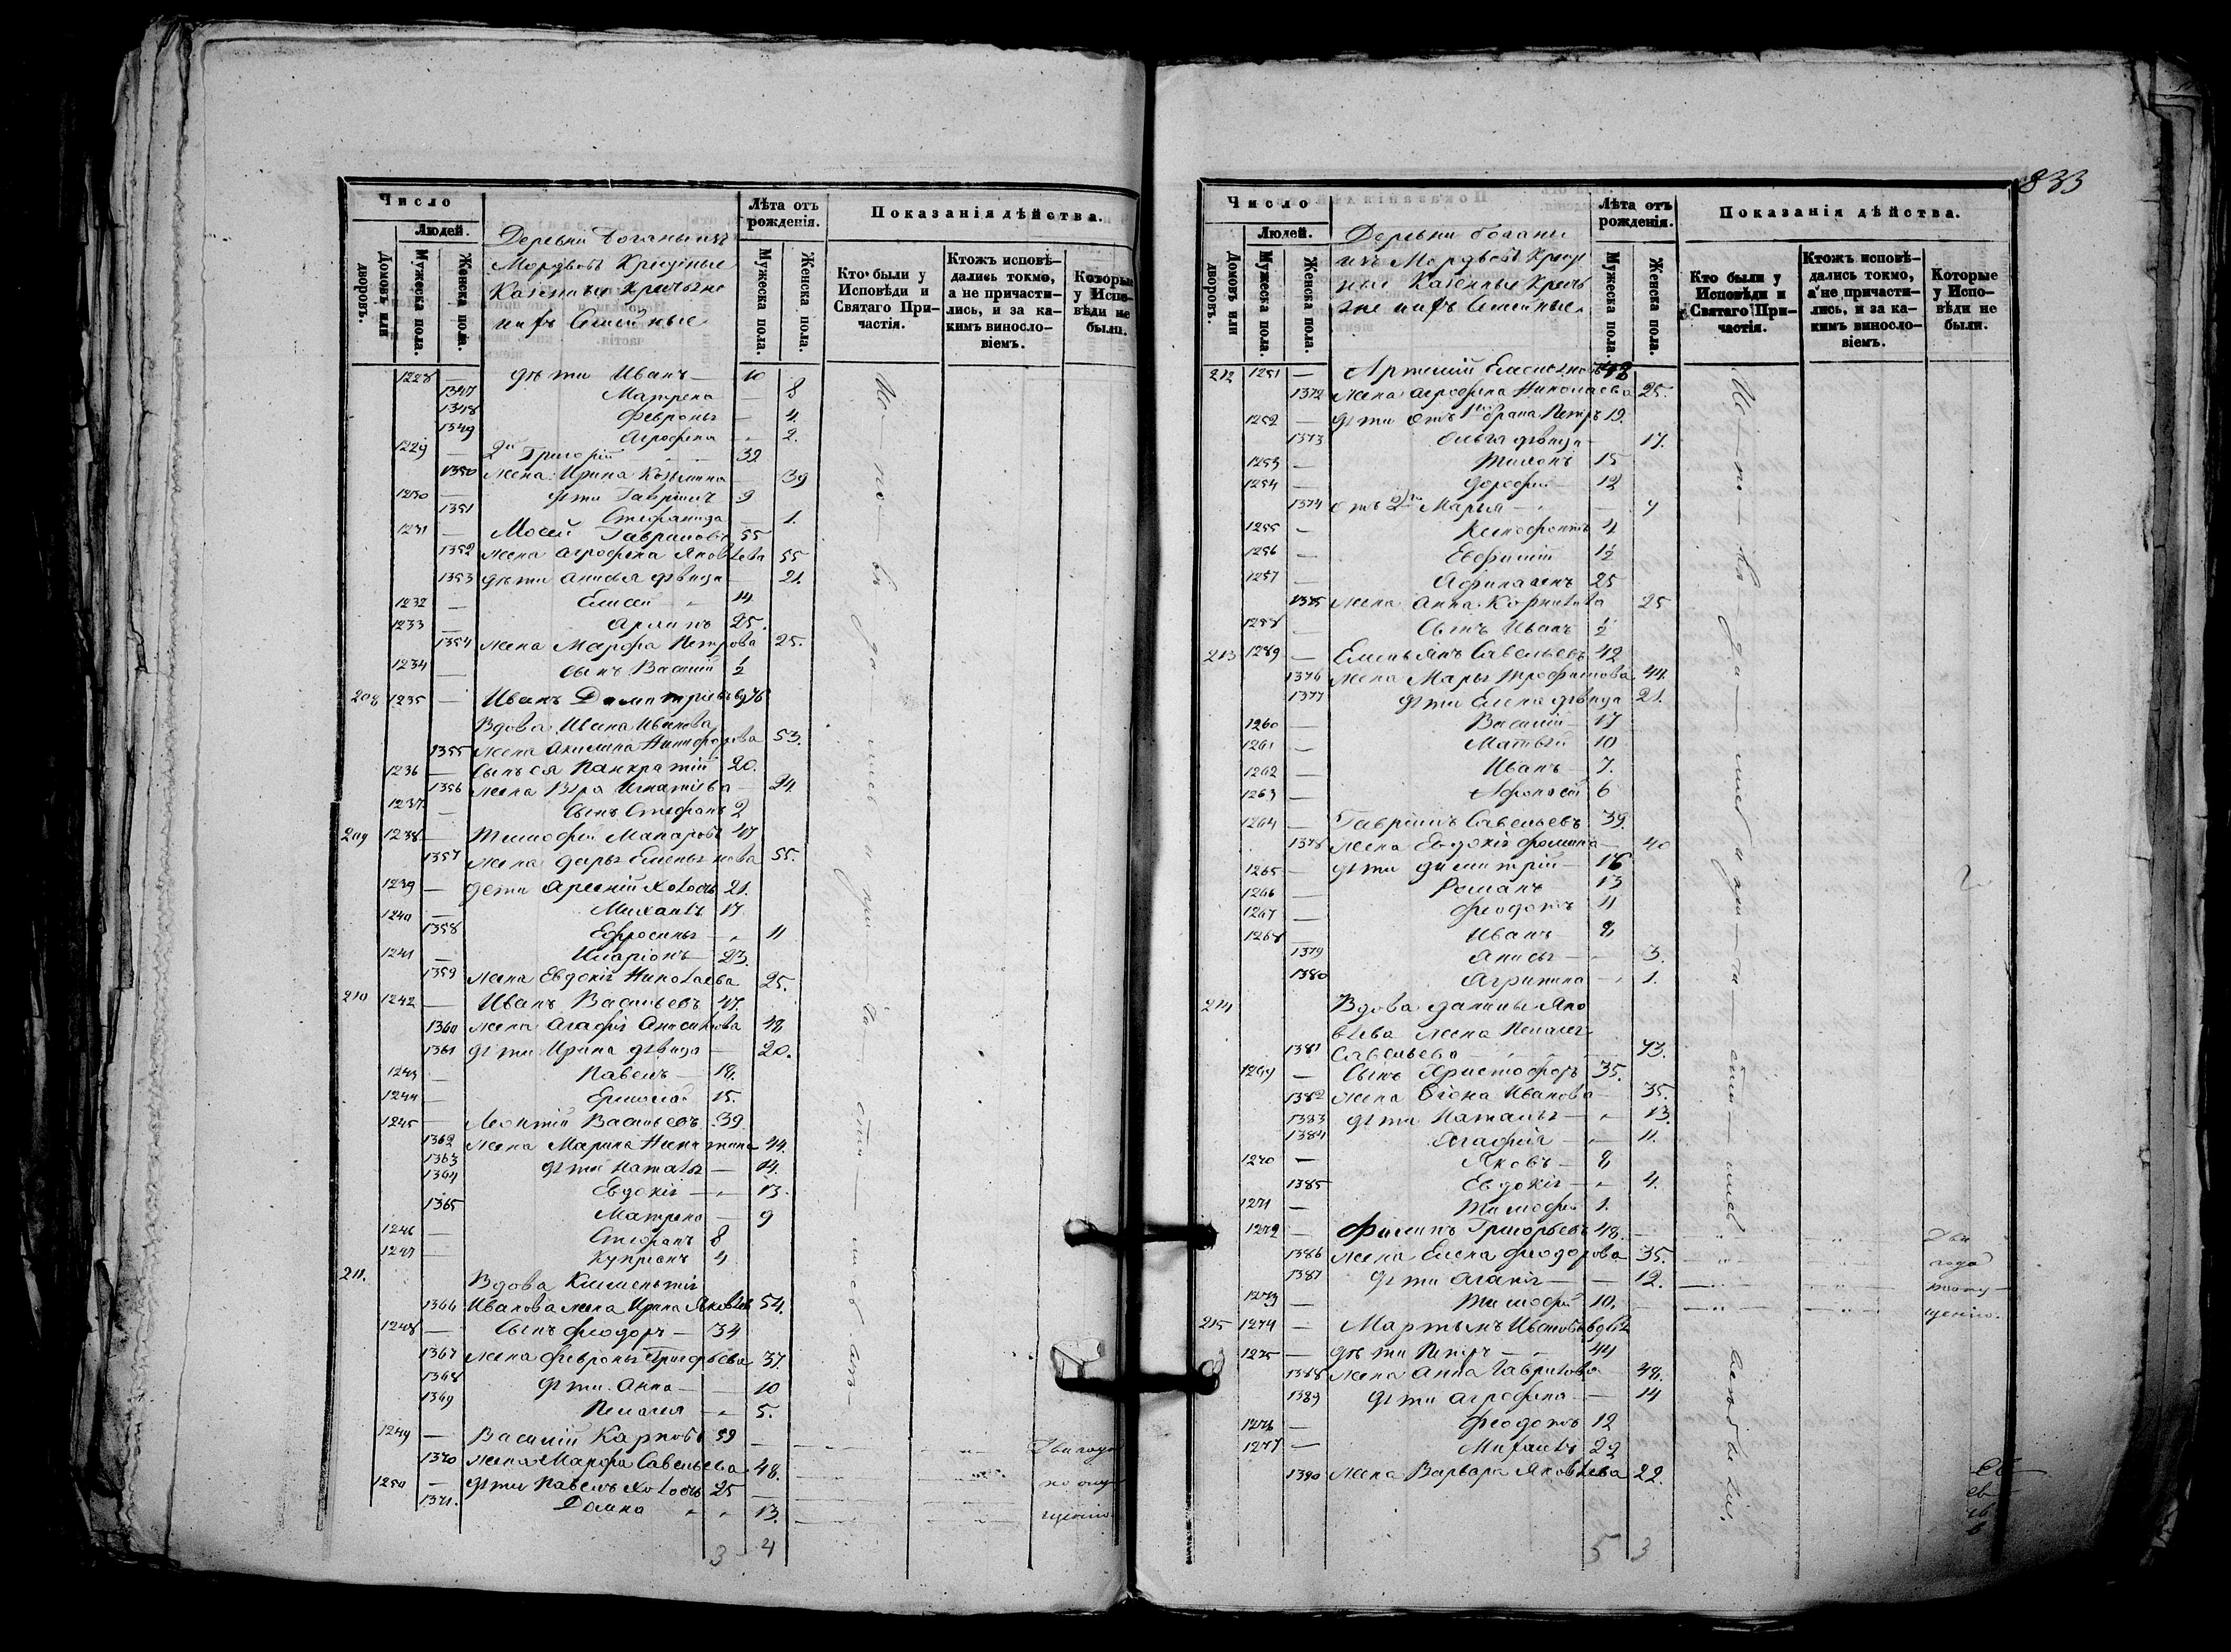 833
Число
Людей.
Домовъ или дворовъ.
Мужеска пола.
Женска пола.
Деревни
Мордвовъ Крещеные
Казенные Крестьяне
ихъ Семейные
Лѣта отъ рожденія.
Мужеска пола.
Женска пола.
Показанія дѣйства.
Кто были у Исповѣди и Святаго Причастія.
Ктожъ исповѣдались токмо, а не причастились, и за какимъ винословіемъ.
Которые у Исповѣди не были.
1228 дѣти Иванъ 10
1347 Матрена 8
1348 Февронья 4.
1349 Агрофена 2.
1229 2й Григорій 32
1350 жена Ирина Козьмина 39
1230 дѣти Гавріилъ 9
1351 Стефанида 1.
1231 Мосей Гавриловъ 55
1352 жена Агрофена Яковлева 55
1353 дѣти Анисья дѣвица 21.
1232 Елисей 14
1233 25.
1354 жена Марфа Петрова 25.
1234 сынъ Василій ½
208 1235 Иванъ Димитріевъ вд 76
Вдова Ивана Иванова
1355 жена Акилина Никифорова 53.
1236 Сынъ ея Панкратій 20.
1356 жена Вѣра Игнатьева 24.
1237 Сынъ Стефанъ 2
209 1238 Тимофей Макаровъ 47
1357 жена Дарья Емельянова 55.
1239 дети Арсеній холостъ 21.
1240 Михаилъ 17
1358 Ефросинья 11
1241 Иларіонъ 23.
1359 жена Евдокія Николаева 25.
210 1242 Иванъ Васильевъ 47.
1360 жена Агафія 48
1361 дѣти Ирина дѣвица 20.
1243 Павелъ 18.
1244 Ермолай 15.
1245 Леонтій Васильевъ 39
1362 жена Марина Никитина 44.
1363 дѣти Наталья 14.
1364 Евдокія 13.
1365 Матрена 9
1246 Стефанъ 8
1247 Купріянъ 4
211. Вдова Климентія
1366 Иванова жена Ирина Яковлев 54.
1248 Сынъ Феодоръ 34
1367 жена Февронья Григорьева 37.
1368 дѣти Анна 10
1369 Пелагея 5.
1249 Василій Карповъ 59
1370 жена Марфа Савельева 48.
1250 дѣти Павелъ холостъ 25
1371. Домна 13.
Два года
по опу
щенію.
3 4
Число
Людей.
Домовъ или дворовъ.
Мужеска пола.
Женска пола.
Деревни
ихъ Мордвовъ Крещ
ные Казенные Кресть
яне ихъ Семейные
Лѣта отъ рожденія.
Мужеска пола.
Женска пола.
Показанія дѣйства.
Кто были у Исповѣди и Святаго Причастія.
Ктожъ исповѣдались токмо, а не причастились, и за какимъ винословіемъ.
Которые у Исповѣди не были.
212 1251 Артемій Емельяновъ 48
1372 жена Агрофена Николаева 25.
1252 дѣти отъ 1го брака Петръ 19.
1373 Ольга дѣвица 17.
1253 Тихонъ 15
1254 Дорофей 12
1374 отъ 2го Марья 7
1255 Ксенофонтъ 4
1256 Евфимій 1½
1257 25
1375 жена Анна Корнилова 25
1258 Сынъ Иванъ ½
213 1259 Емельянъ Савельевъ 42
1376 жена Марья Трофимова 44.
1377 дѣти Елена дѣвица 21.
1260 Василій 17
1261 Матвѣй 10
1262 Иванъ 7.
1263 Афонасій 6
1264 Гавріилъ Савельевъ 39.
1378 жена Евдокія Фомина 40
1265 дѣти Димитрій 16
1266 Романъ 13
1267 Феодотъ 11
1268 Иванъ 8
1379 Анисья 3.
1380 Агрипина 1.
214 Вдова Данилы Яко
влева жена Пелагея
1381 Савельева 73.
1269 Сынъ Христофоръ 35.
1382 жена Ѳіона Иванова 35.
1383 дѣти Наталья 13.
1384 Агафія 11.
1270 Яковъ 8
1385 Евдокія 4.
1271 Тимофей 1.
1272 Филипъ Григорьевъ 48.
1386 жена Елена Феодорова 35.
1387 дѣти 12.
1273 Тимофей 10.
Два
года
по опу
щенію.
215 1274 Мартынъ
1275 дѣти Петръ 44
1388 жена Анна Гаврилова 48.
1389 дѣти Агрофена 14
1276 Феодотъ 12
1277 Михаилъ 22
1390 жена Варвара Яковлева 22.
5 3